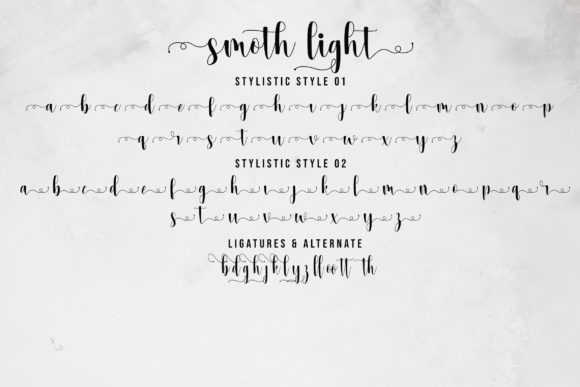 smoth light
STYLISTIC STYLE 01
a b c d e f g h i j k l m n o p
q r s t u v w x y z
STYLISTIC STYLE 02
a b c d e f g h i j k l m n o p q r
s t u v w x y z
LIGATURES & ALTERNATE
b d g h j k l y z ll oo tt th